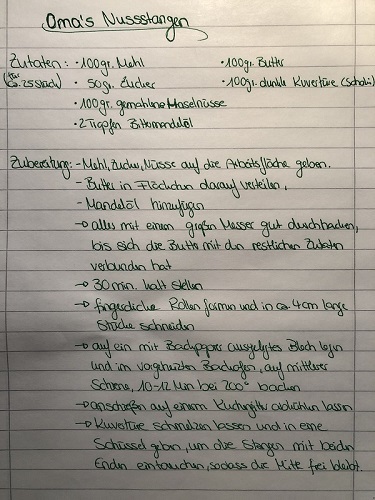 Oma's Nussstangen
Zutaten: • 100gr. Mehl • 100gr. Butter
(für ca. 25 Stück) • 50gr. Zucker • 100gr. dunkle Kuvertüre (Schoki)
• 100gr. gemahlene Haselnüsse
• 2 Tropfen Bittermandelöl
Zubereitung: - Mehl, Zucker, Nüsse auf die Arbeitsfläche geben.
- Butter in Flöckchen darauf verteilen,
- Mandelöl hinzufügen
→ alles mit einem großen Messer gut durchhacken,
bis sich die Butter mit den restlichen Zutaten
verbunden hat
→ 30 min. kalt stellen
→ fingerdicke Rollen formen und in ca. 4cm lange
Stücke schneiden
→ auf ein mit Backpapier ausgelegtes Blech legen
und im vorgeheizten Backofen, auf mittlerer
Schiene, 10-12 Min bei 200° backen
→ anschließen auf einem Kuchengitter abkühlen lassen
→ Kuvertüre schmelzen lassen und in eine
Schüssel geben, um die Stangen mit beiden
Enden eintauchen, sodass die Mitte frei bleibt.